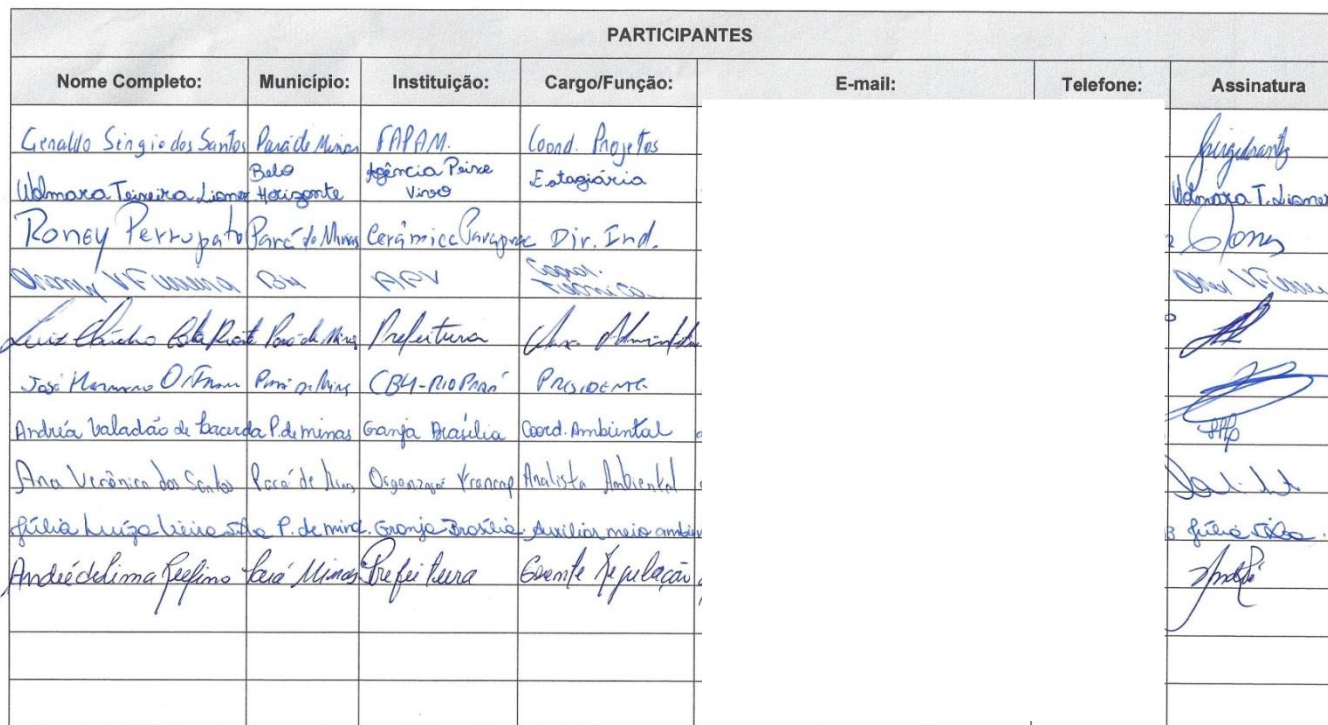 PARTICIPANTES
Nome Completo: Município: Instituição: Cargo/Função: E-mail: Telefone: Assinatura
Geraldo Sérgio dos Santos Pará de Minas FAPAM. Coord. Projetos
Walmara Teixeira Belo Horizonte Agência Peixe Vivo Estagiária Walmara T.
Roney Perrupato Pará de Minas Cerâmica Dir. Ind.
BH APV Coord. Técnica
Luiz Cláudio Pará de Minas Prefeitura
José Hermano Pará de Minas CBH-RIO PARÁ PRESIDENTE
Andréa Valadão de Lacerda P. de minas Granja Brasília Coord. Ambiental
Ana Verônica dos Santos Pará de Minas Analista Ambiental
Júlia Luíza Vieira P. de minas. Granja Brasília. Auxiliar meio Júlia
André de Lima Rufino Pará Minas Prefeitura Gerente Regulação André